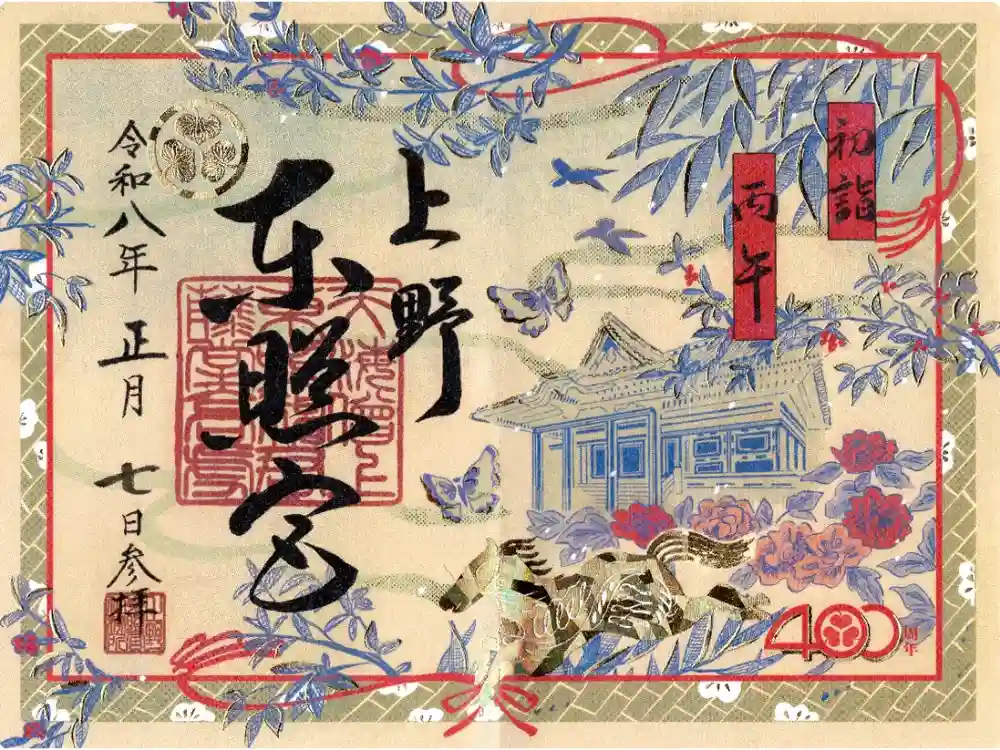 初詣
丙午
上野
東照宮
令和八年 正月 七日参拝
400周年